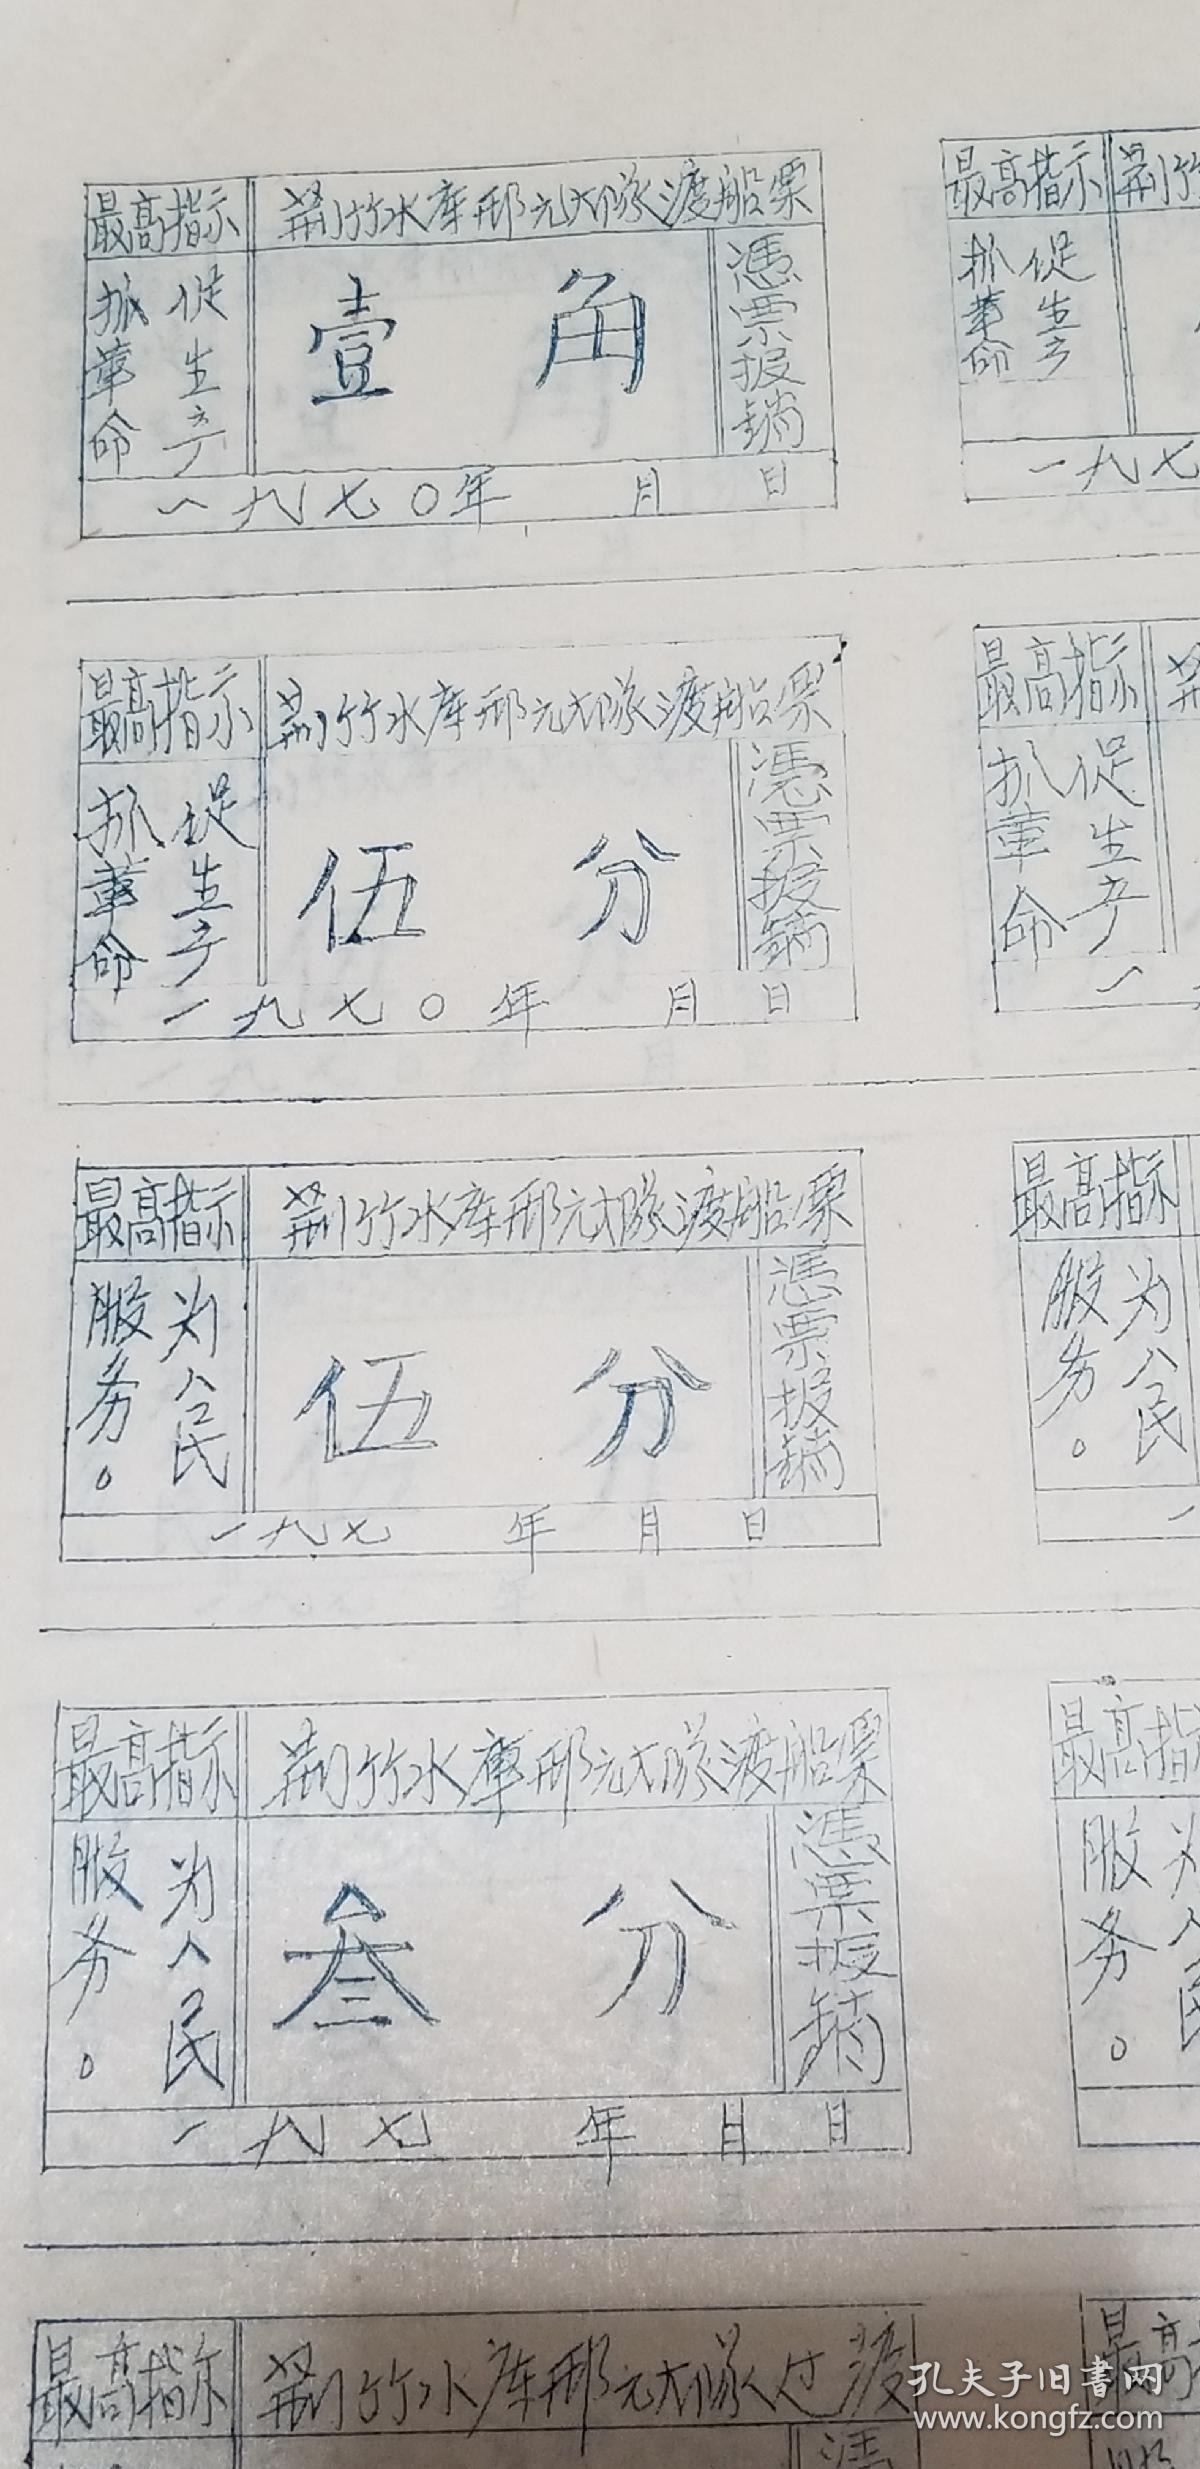 最高指示
荆竹水库邢元大隊渡船票
抓革命
促生产
壹角
憑票报销
一九七〇年 月 日
最高指示 荆竹
抓革命
促生产
一九七
最高指示
荆竹水库邢元大隊渡船票
抓革命
促生产
伍分
憑票报销
一九七〇年 月 日
最高指示
抓革命
促生产
一
最高指示
荆竹水库邢元大隊渡船票
为人民
服务。
伍分
憑票报销
一九七 年 月 日
最高指示
为人民
服务。
一
最高指示
荆竹水库邢元大隊渡船票
为人民
服务。
叁分
憑票报销
一九七 年 月 日
最高指示
为人民
服务。
最高指示
荆竹水库邢元大隊过渡
憑
最高
孔夫子旧书网
www.kongfz.com